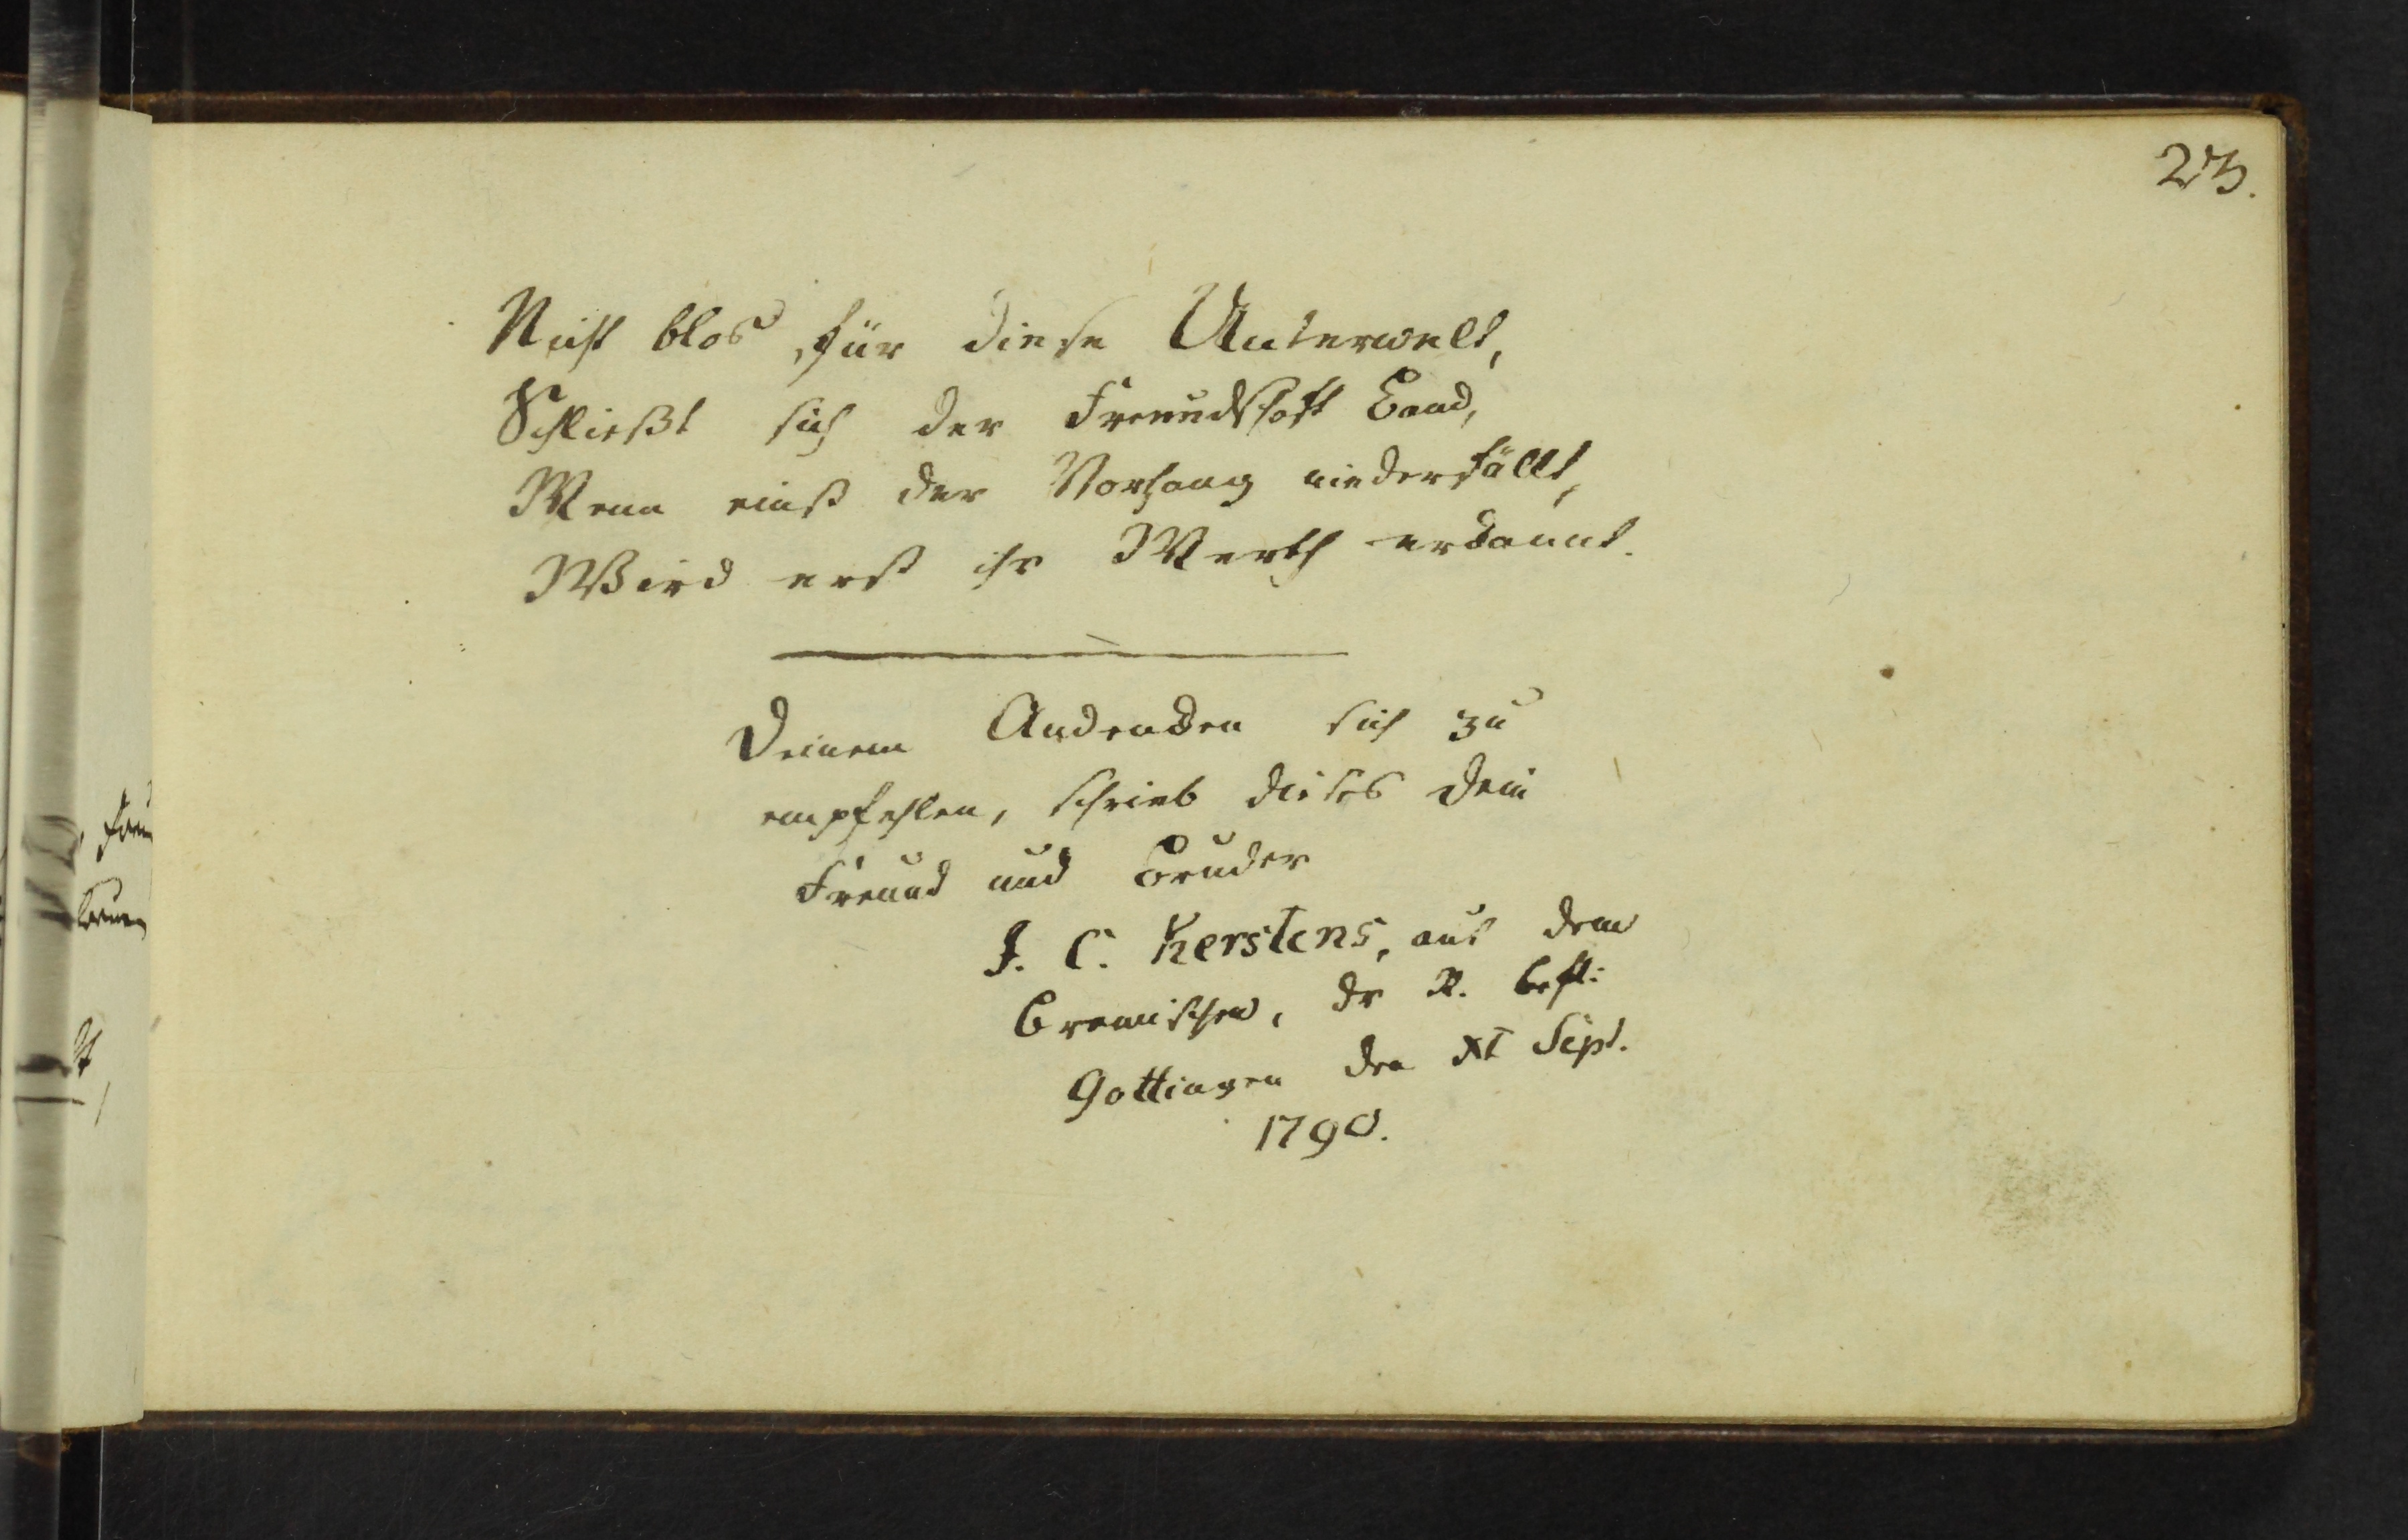 23.
Nicht blos für diese Unterwelt,
Schließt sich der Freundschaft Band,
Wenn einst der Vorhang niederfällt,
Wird erst ihr Werth erkannt.
Deinem Andenken sich zu
empfehlen, schrieb dieses dein
Freund und Bruder
J. C. Kerstens, aus dem
Bremischen, der R. Befl:
Gottingen den XI Sept.
1790.